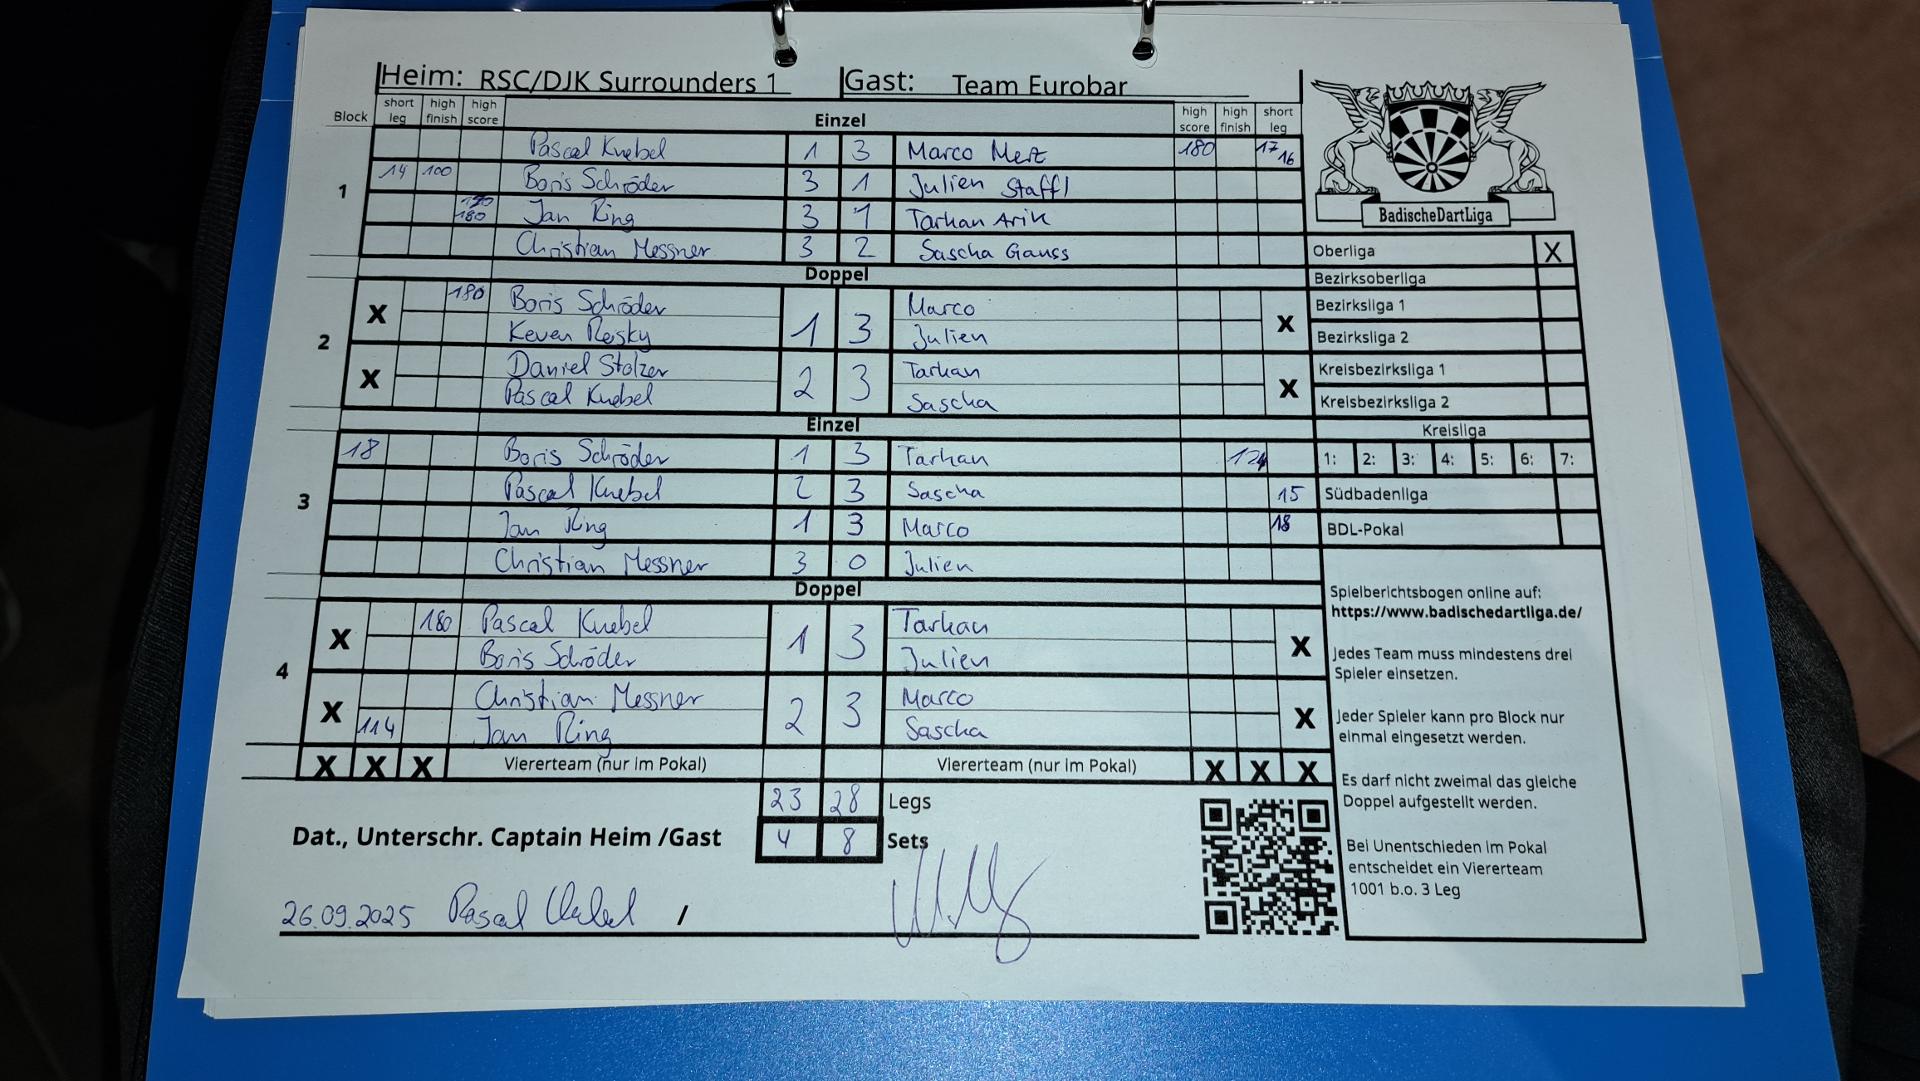 Heim: RSC/DJK Surrounders 1 Gast: Team Eurobar
Block short leg high finish high score Einzel high score high finish short leg
Pascal Knebel 1 3 Marco Merz 180 17 16
1 14 100 Boris Schröder 3 1 Julien Staffl
180 Jan Ring 3 1 Tarkan Arik
Christian Messner 3 2 Sascha Gauss
Doppel
2 X 180 Boris Schröder 1 3 Marco X
Keven Resky Julien
X Daniel Stolzer 2 3 Tarkan X
Pascal Knebel Sascha
Einzel
3 18 Boris Schröder 1 3 Tarkan
Pascal Knebel 2 3 Sascha 15
Jan Ring 1 3 Marco 18
Christian Messner 3 0 Julien
Doppel
4 X 180 Pascal Knebel 1 3 Tarkan X
Boris Schröder Julien
X Christian Messner 2 3 Marco X
114 Jan Ring Sascha
X X X Viererteam (nur im Pokal) Viererteam (nur im Pokal) X X X
23 28 Legs
Dat., Unterschr. Captain Heim /Gast 4 8 Sets
26.09.2025 Pascal Knebel /
BadischeDartLiga
Oberliga X
Bezirksoberliga
Bezirksliga 1
Bezirksliga 2
Kreisbezirksliga 1
Kreisbezirksliga 2
Kreisliga
1: 2: 3: 4: 5: 6: 7:
Südbadenliga
BDL-Pokal
Spielberichtsbogen online auf:
https://www.badischedartliga.de/
Jedes Team muss mindestens drei
Spieler einsetzen.
Jeder Spieler kann pro Block nur
einmal eingesetzt werden.
Es darf nicht zweimal das gleiche
Doppel aufgestellt werden.
Bei Unentschieden im Pokal
entscheidet ein Viererteam
1001 b.o. 3 Leg